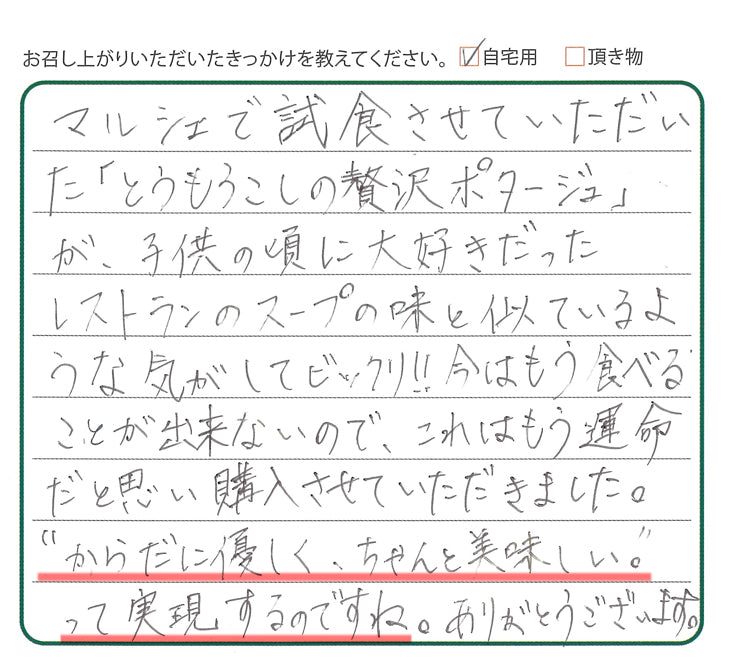 お召し上がりいただいたきっかけを教えてください。 自宅用 頂き物
マルシェで試食させていただい
た「とうもろこしの贅沢ポタージュ」
が、子供の頃に大好きだった
レストランのスープの味と似ているよ
うな気がしてビックリ!!今はもう食べる
ことが出来ないので、これはもう運命
だと思い購入させていただきました。
“からだに優しく、ちゃんと美味しい。”
って実現するのですね。ありがとうございます。